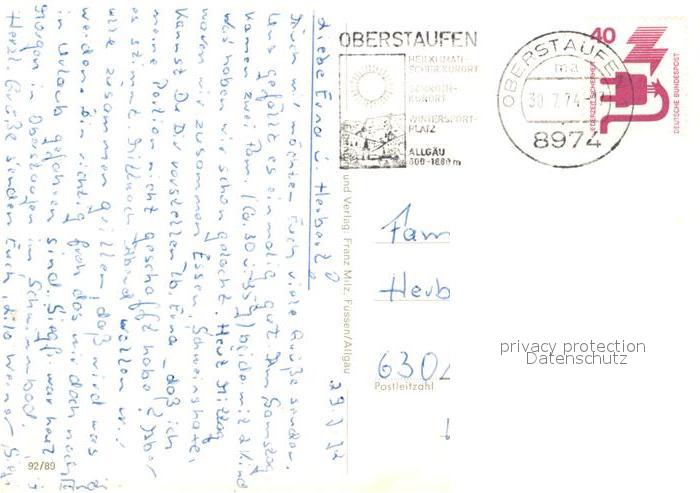 OBERSTAUFEN
HEILKLIMATI-
SCHER KURORT
SCHROTH-
KURORT
WINTERSPORT-
PLATZ
ALLGÄU
800-1880 m
OBERSTAUFEN
ma
30.7.74-
8974
40
JEDERZEIT SICHERHEIT
DEUTSCHE BUNDESPOST
Fam
Herb
6302
Postleitzahl
und Verlag: Franz Milz, Füssen/Allgäu
92/89
29.7.74
Liebe Erna u. Herbert!
Auch möchten Euch viele Grüße senden.
Uns gefällt es einmalig gut. Am Samstag
kamen zwei Fam. (Ca. 30 u. 35 J) beide mit 2 Kind
was haben wir schon gelacht. Heut Mittag
waren wir zusammen Essen, Schweinshaxe,
Kannst Du Dir vorstellen lb. Erna, daß ich
meine Portion nicht geschafft habe? Aber
es stimmt. Mittwoch Abend wollen wir
alle zusammen grillen, daß wird was
werden. bin richtig froh das wir doch noch
in Urlaub gefahren sind. Siegfr. war heut
Morgen in Oberstaufen im Schwimmbad.
Herzl. Grüße senden Euch, Werner Sieg
privacy protection
Datenschutz